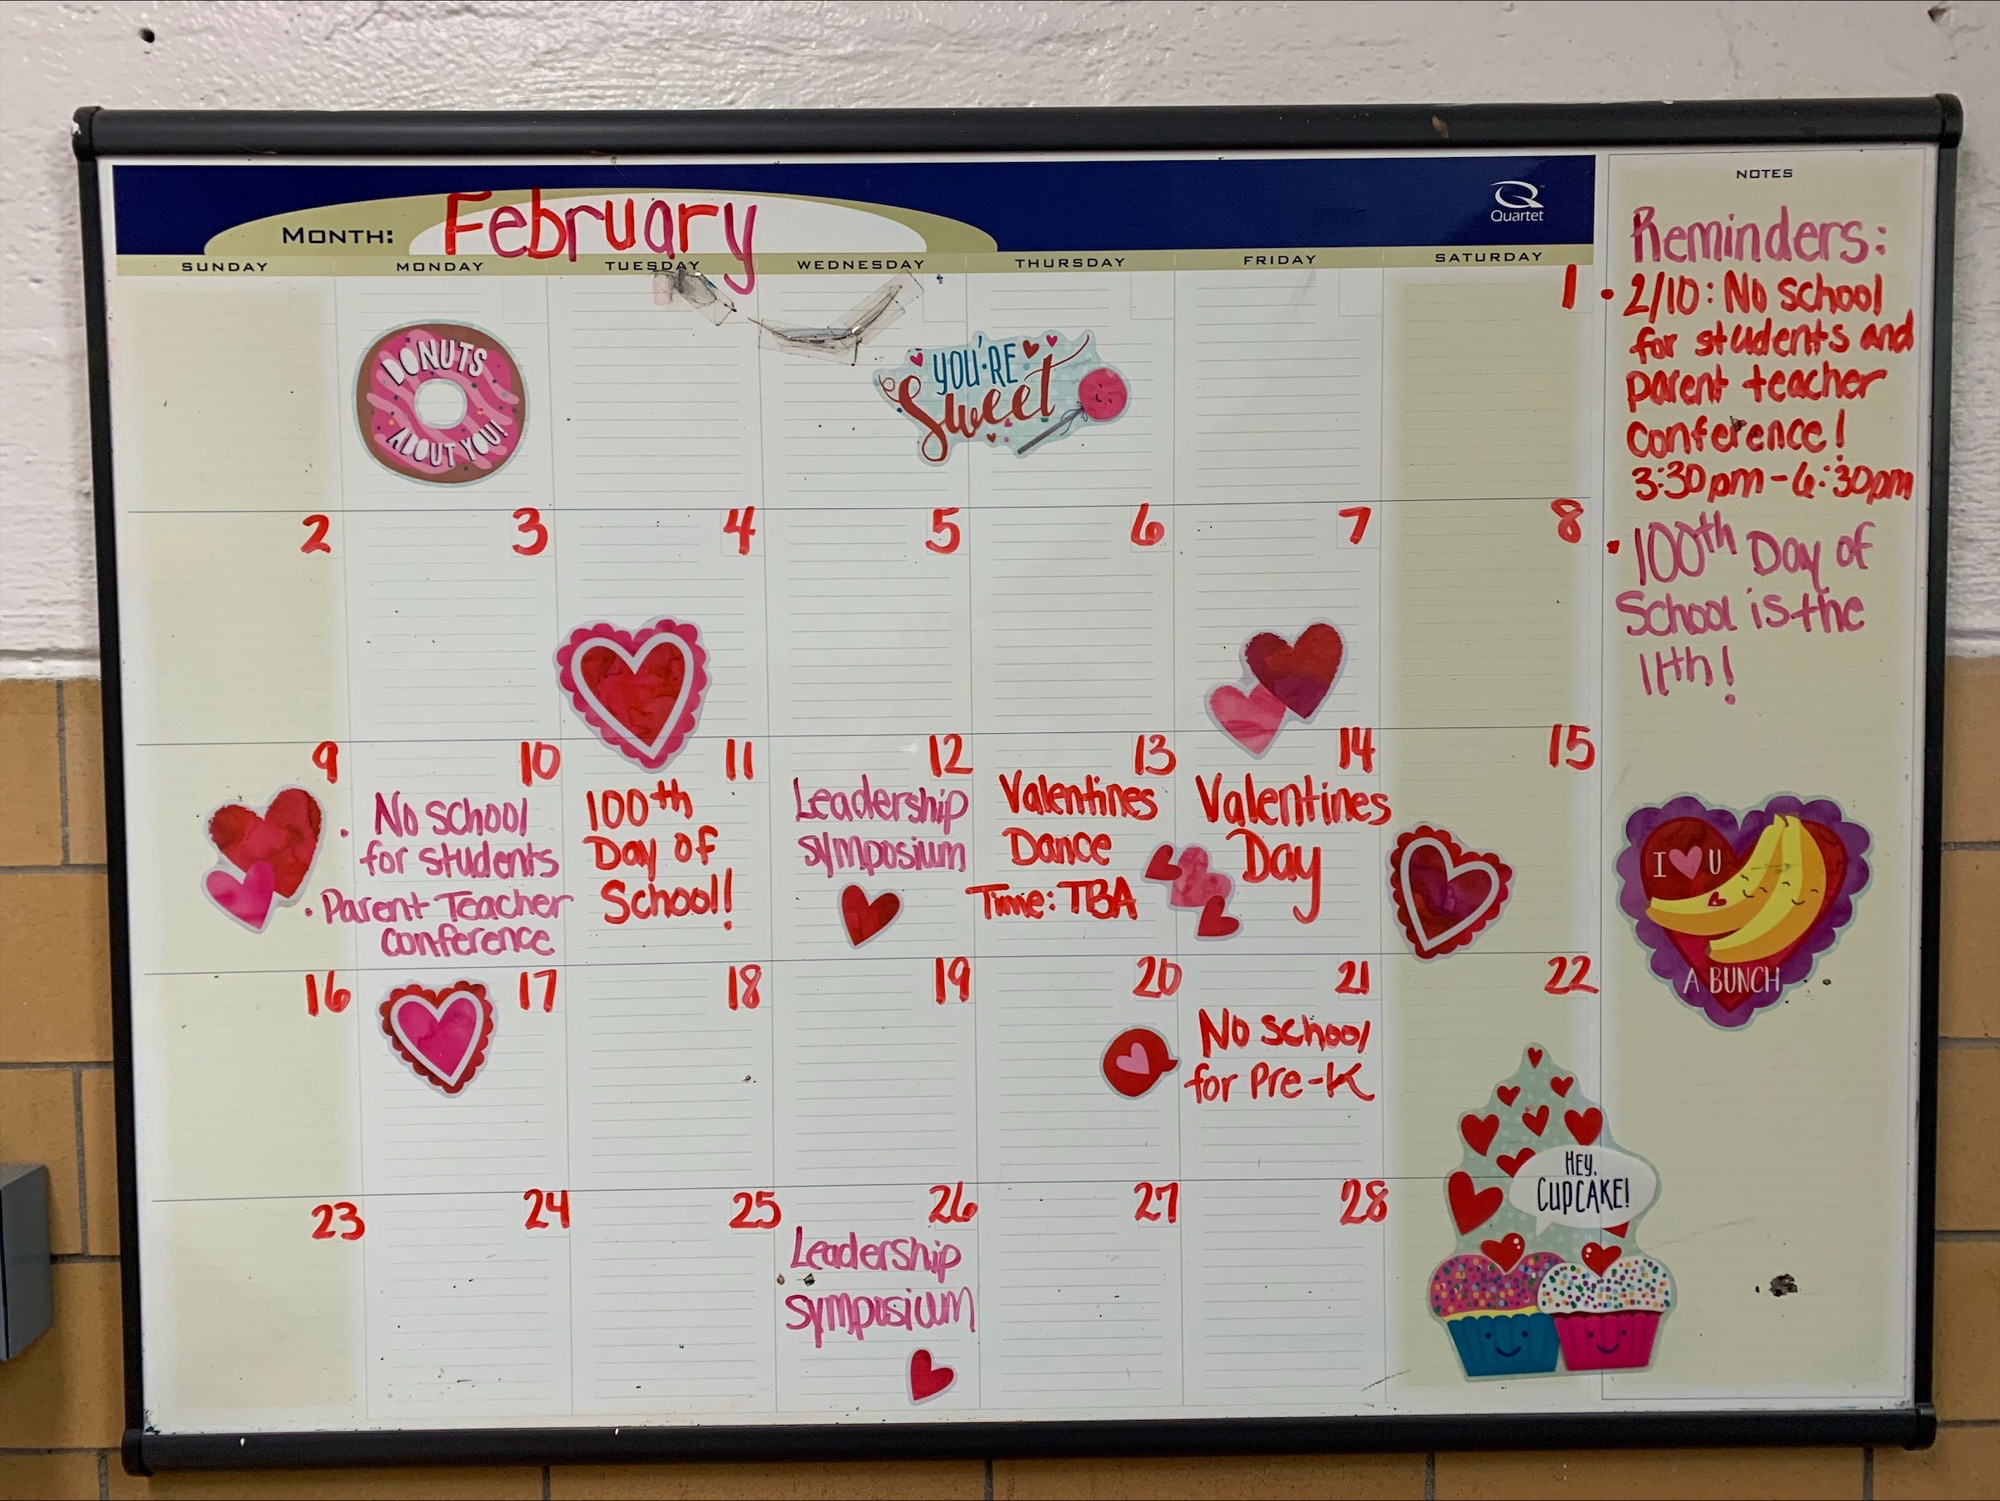 MONTH: February
Quartet
SUNDAY MONDAY TUESDAY WEDNESDAY THURSDAY FRIDAY SATURDAY
1
DONUTS
ABOUT YOU!
YOU'RE
Sweet
2 3 4 5 6 7 8
9 10 11 12 13 14 15
• No school
for students
• Parent Teacher
conference
100th
Day of
School!
Leadership
symposium
Valentines
Dance
Time: TBA
Valentines
Day
16 17 18 19 20 21 22
No school
for Pre-K
23 24 25 26 27 28
Leadership
symposium
HEY,
CUPCAKE!
NOTES
Reminders:
• 2/10: No school
for students and
parent teacher
conference!
3:30pm-6:30pm
• 100th Day of
School is the
11th!
I U
A BUNCH